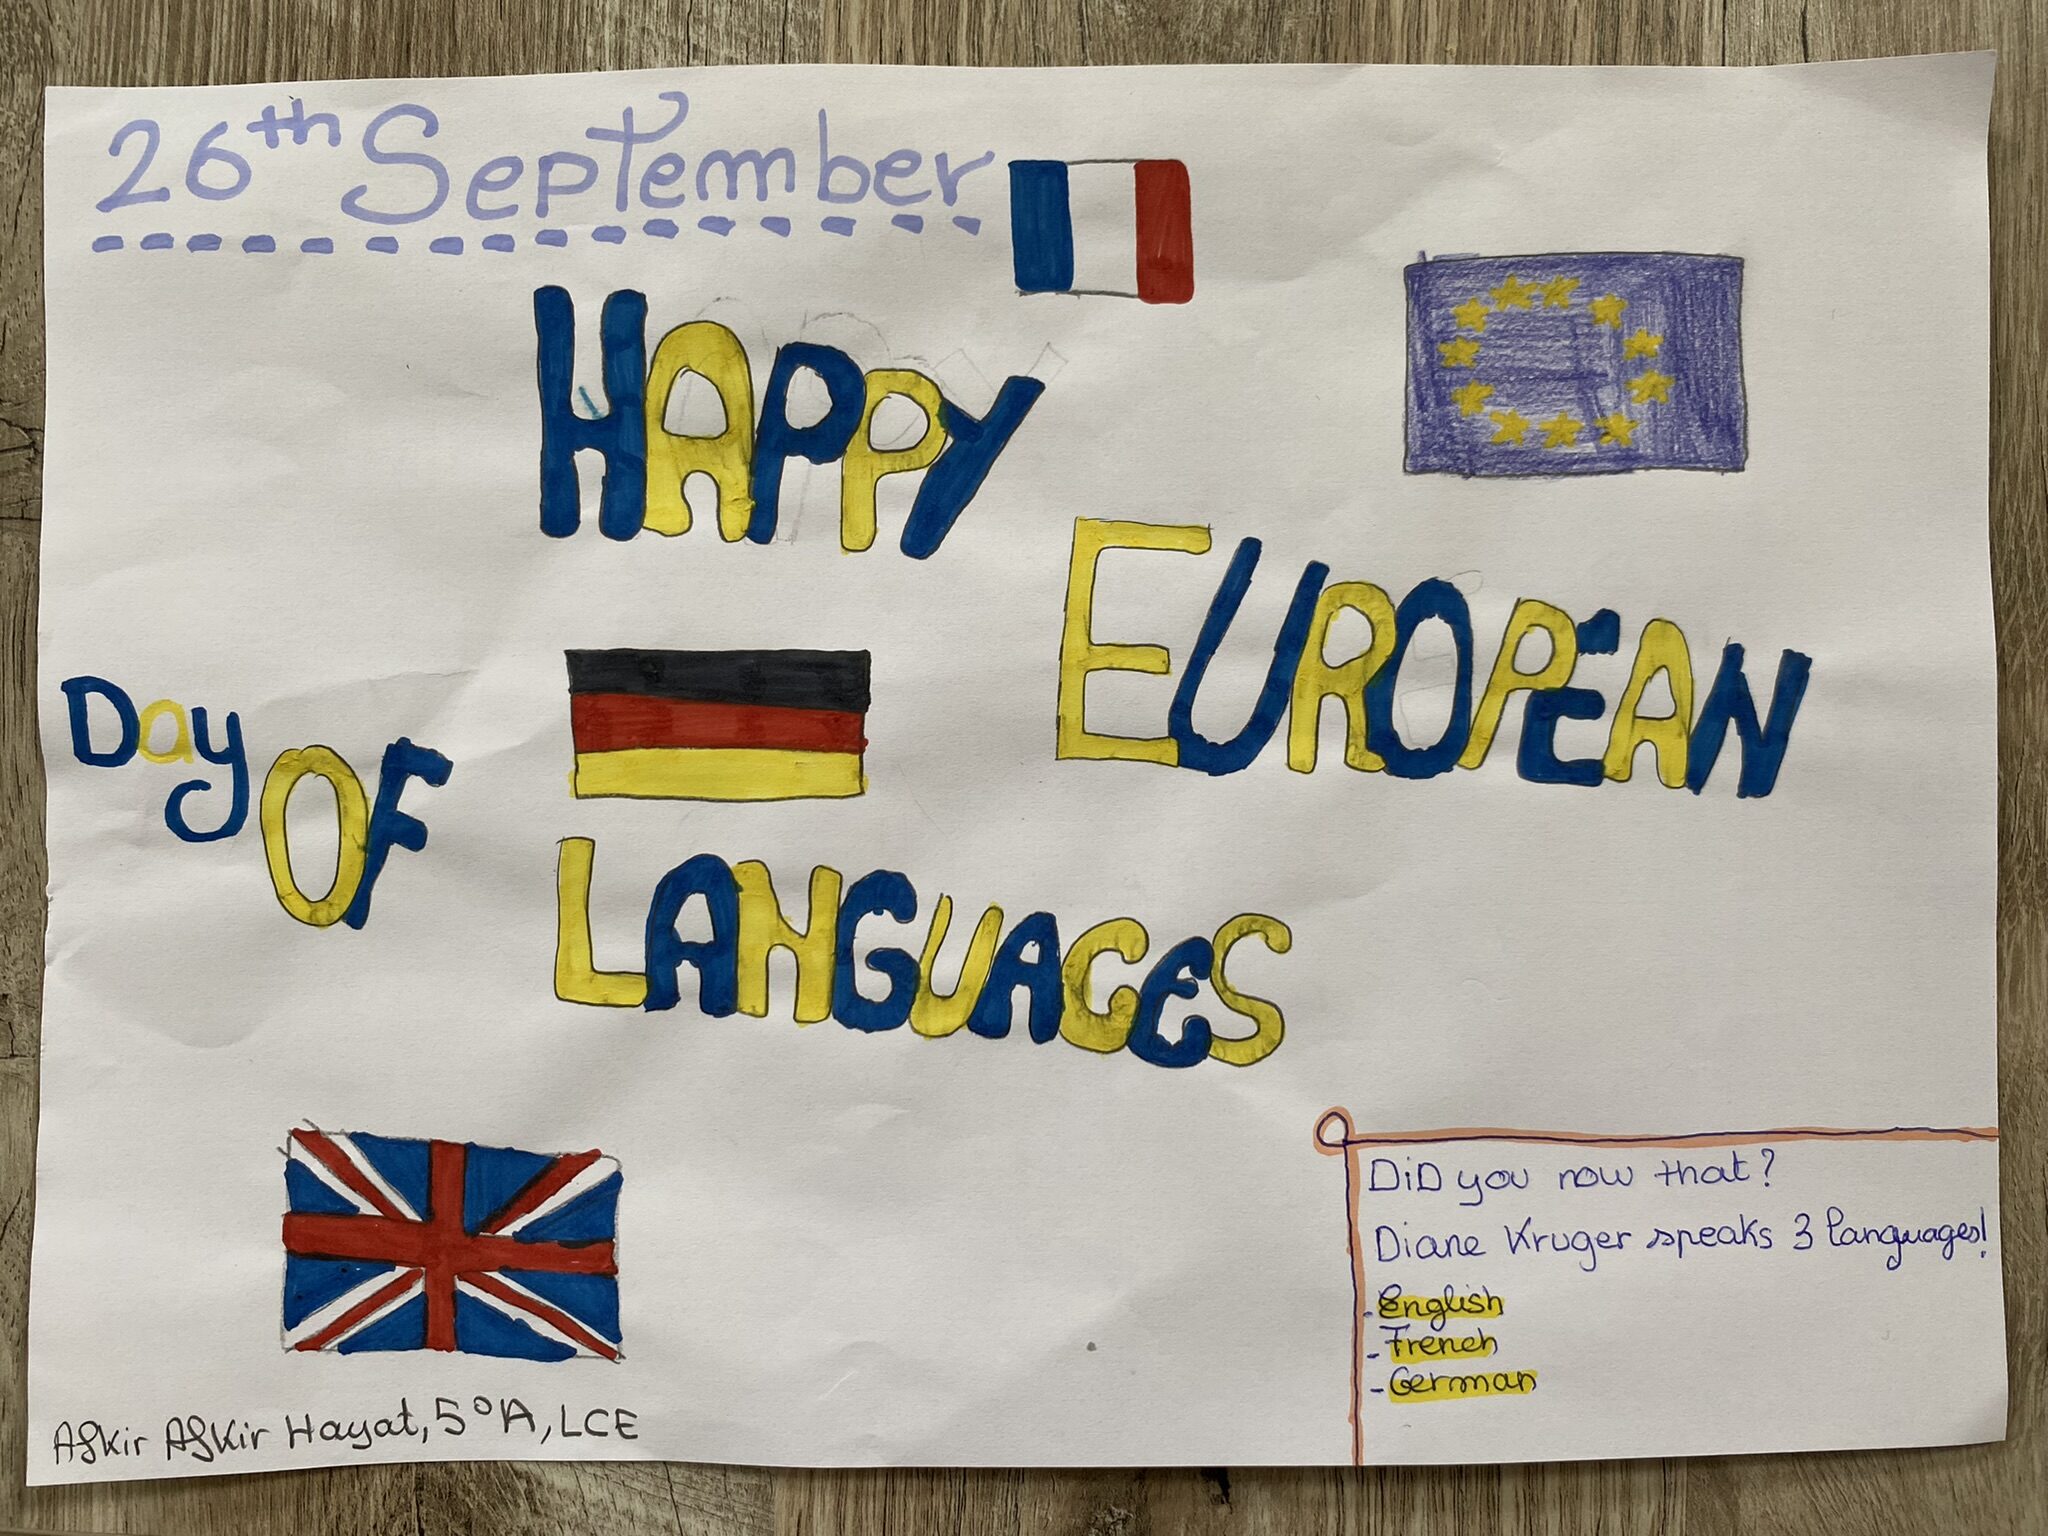 26th September
HAPPY
EUROPÉAN
Day OF
LANGUAGES
DiD you now that?
Diane Kruger speaks 3 languages!
- English
- French
- German
Askir Askir Hayat, 5°A, LCE